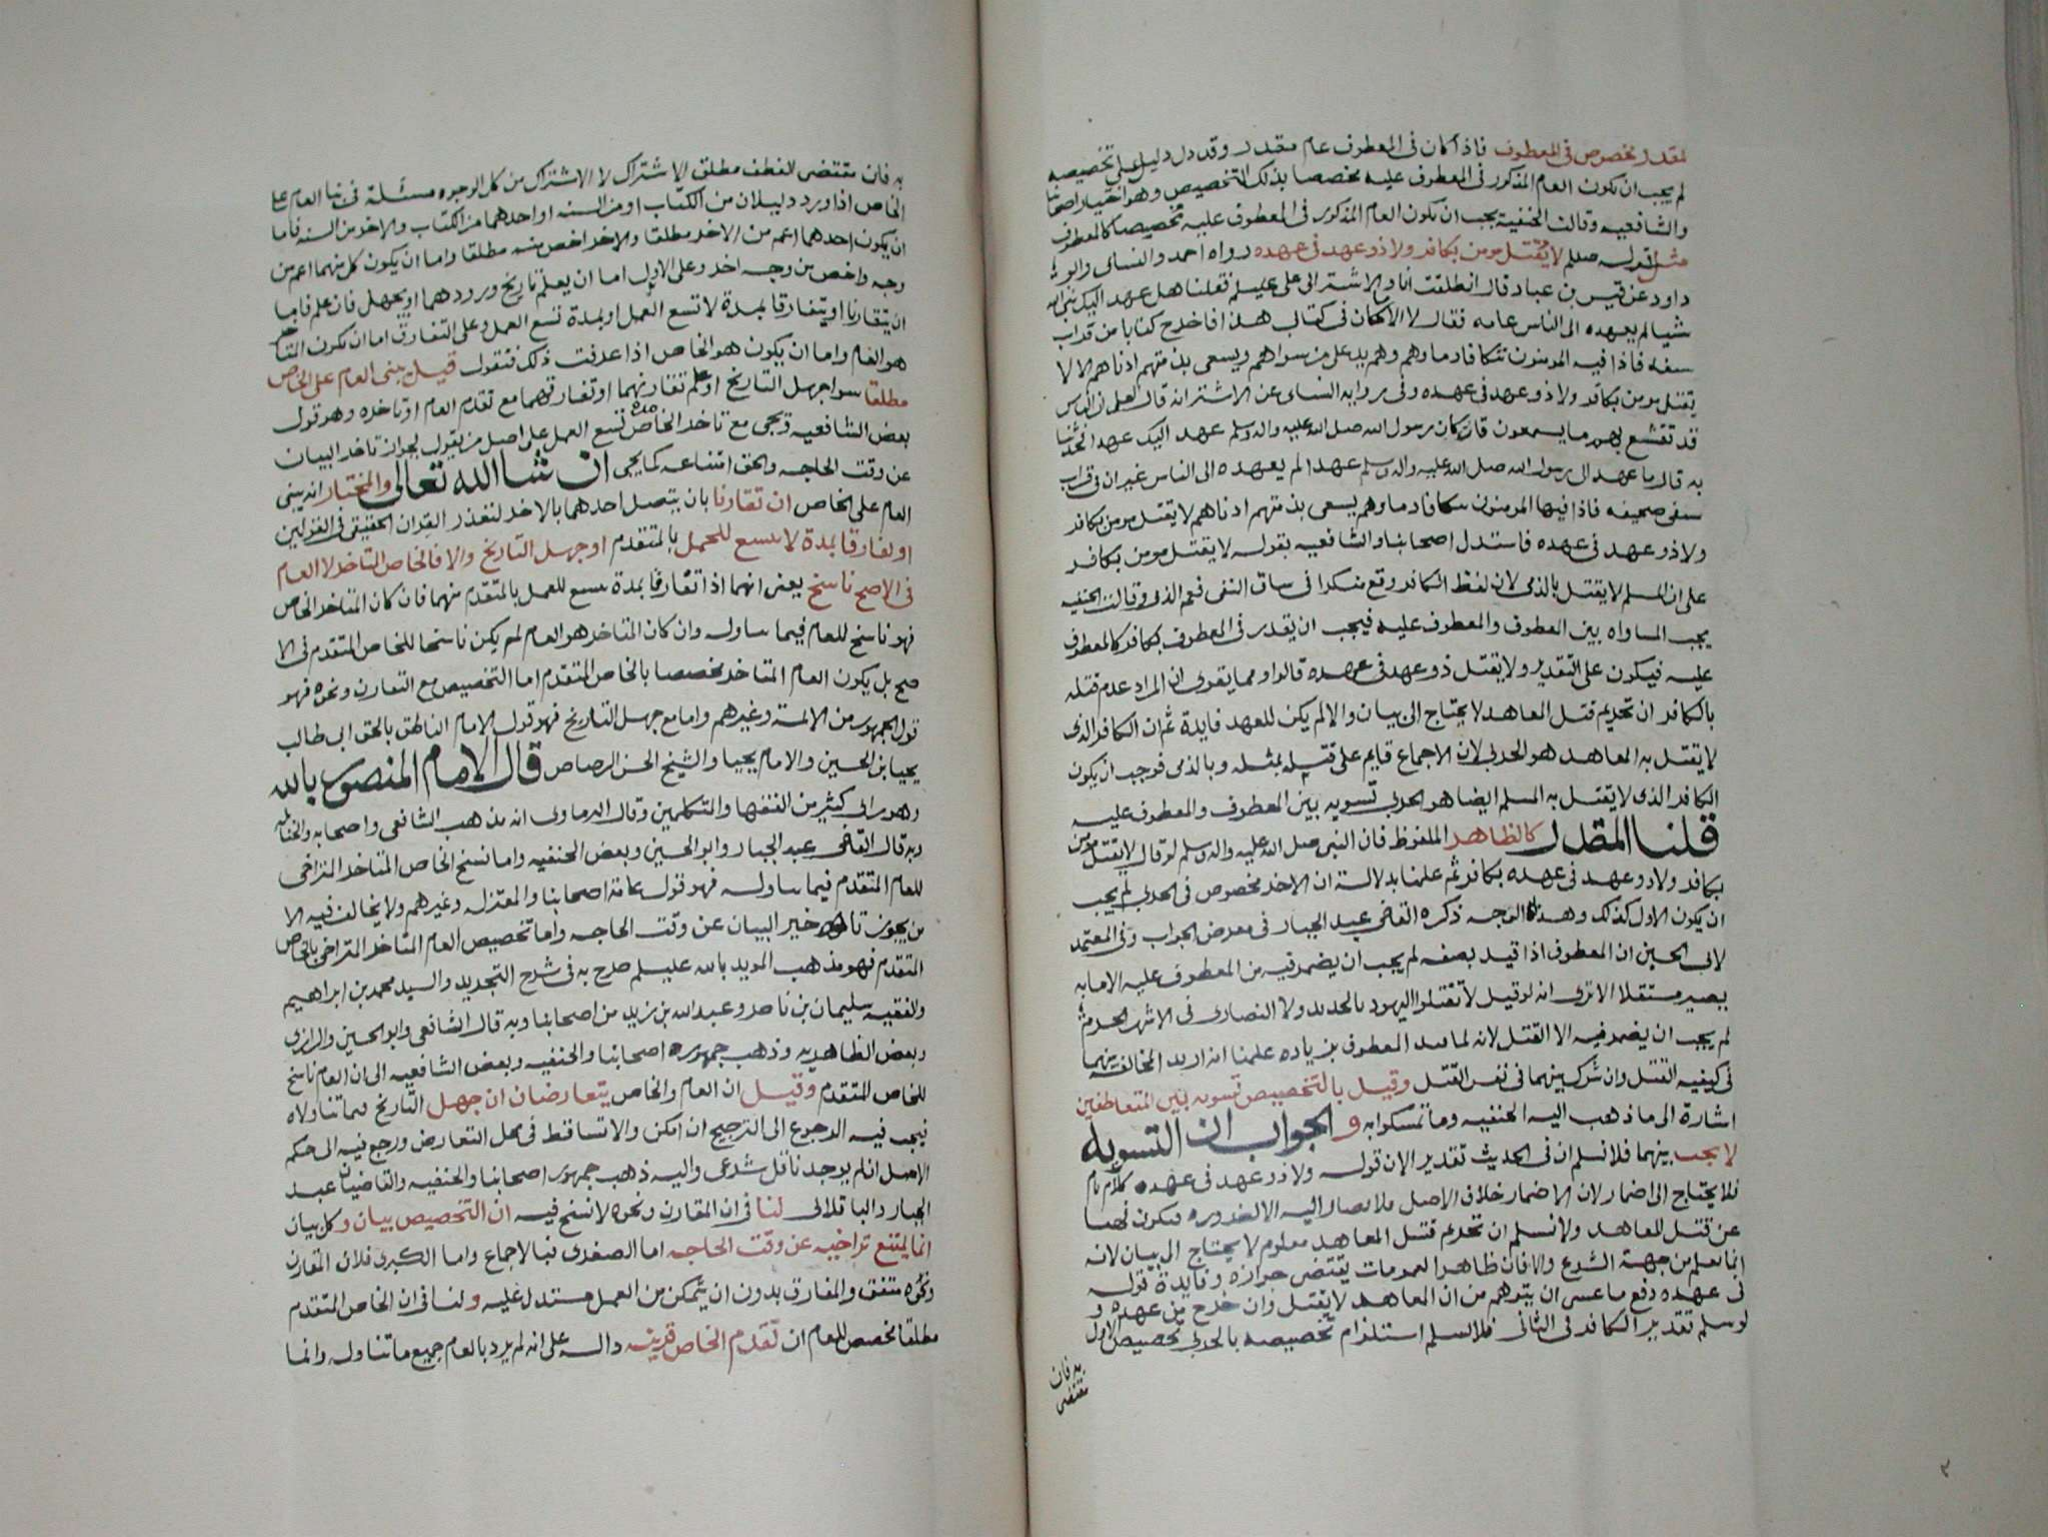 لمقدر مخصوص فى المعطوف فاذا كان فى المعطوف عام مقدر وقد دل دليل على تخصيصه
لم يجب ان يكون العام المذكور فى المعطوف عليه مخصصا بذلك التخصيص وهو اختيار اصحابنا
والشافعيه وقالت الحنفية يجب ان يكون العام المذكور فى المعطوف عليه تخصيصا كالمعطوف
مثل قوله صللم لا يقتل مومن بكافر ولا ذو عهد فى عهده رواه احمد والنساى وابو
داود عن قيس بن عباد قال انطلقت انا والاشتر الى على عليلم فقلنا هل عهد اليك نبى الله
شيا لم يعهده الى الناس عامه فقال لا الا ما كان فى كتابى هذا فاخرج كتابا من قراب
سيفه فاذا فيه المومنون تتكافا دماوهم وهم يد على من سواهم ويسعى بذمتهم ادناهم الا لا
يقتل مومن بكافر ولا ذو عهد فى عهده وفى روايه النساى عن الاشتر انه قال لعلى ان الناس
قد تفشغ بهم ما يسمعون فان كان رسول الله صلى الله عليه واله وسلم عهد اليك عهدا فحدثنا
به قال ما عهد الى رسول الله صلى الله عليه واله وسلم عهدا لم يعهده الى الناس غير ان فى قراب
سيفى صحيفه فاذا فيها المومنون تتكافا دماوهم يسعى بذمتهم ادناهم لا يقتل مومن بكافر
ولا ذو عهد فى عهده فاستدل اصحابنا والشافعيه بقوله لا يقتل مومن بكافر
على ان المسلم لا يقتل بالذمى لان لفظ الكافر وقع منكرا فى سياق النفى فعم الذمى وقالت الحنفيه
يجب المساواه بين المعطوف والمعطوف عليه فيجب ان يقدر فى المعطوف بكافر كالمعطوف
عليه فيكون على التقدير ولا يقتل ذو عهد فى عهده قالوا ومما يقوى ان المراد عدم قتله
بالكافر ان تحريم قتل المعاهد لا يحتاج الى بيان والا لم يكن للعهد فايدة ثم ان الكافر الذى
لا يقتل به المعاهد هو الحربى لان الاجماع قايم على قتله بمثله وبالذمى فوجب ان يكون
الكافر الذى لا يقتل به المسلم ايضا هو الحربى تسويه بين المعطوف والمعطوف عليه
قلنا المقدر كالظاهر الملفوظ فان النبى صلى الله عليه واله وسلم لو قال لا يقتل مومن
بكافر ولا ذو عهد فى عهده بكافر ثم علمنا بدلالة ان الاخر مخصوص فى الحربى لم يجب
ان يكون الاول كذلك وهذا الوجه ذكره القاضى عبد الجبار فى معرض الجواب وفى المعتمد
لابى الحسين ان المعطوف اذا قيد بصفه لم يجب ان يضمر فيه من المعطوف عليه الا ما به
يصير مستقلا الا ترى انه لو قيل لا تقتلوا اليهود بالحديد ولا النصارى فى الاشهر الحرم
لم يجب ان يضمر فيه الا القتل لانه لما قيد المعطوف بزياده علمنا انه اريد المخالفه بينهما
فى كيفيه القتل وان شرك بينهما فى نفس القتل وقيل بالتخصيص تسويه بين المتعاطفين
اشارة الى ما ذهب اليه الحنفيه وما تمسكوا به والجواب ان التسويه
لا يجب بينهما فلا نسلم ان فى الحديث تقدير الان قوله ولا ذو عهد فى عهده كلام تام
فلا يحتاج الى اضمار لان الاضمار خلاف الاصل فلا يصار اليه الا لضروره فيكون نهيا
عن قتل المعاهد ولا نسلم ان تحريم قتل المعاهد معلوم لا يحتاج الى بيان لانه
انما يعلم من جهة الشرع والا فان ظاهر العمومات يقتضى جوازه وفايدة قوله
فى عهده دفع ما عسى ان يتوهم من ان المعاهد لا يقتل وان خرج من عهده و
لو سلم تقدير الكافر فى الثانى فلا نسلم استلزام تخصيصه بالحربى تخصيص الاول
به فان
مقتضى
به فان مقتضى العطف مطلق الاشتراك لا الاشتراك من كل الوجوه مسئلة فى بنا العام على
الخاص اذا ورد دليلان من الكتاب او من السنه او احدهما من الكتاب والاخر من السنه فاما
ان يكون احدهما اعم من الاخر مطلقا والاخر اخص منه مطلقا واما ان يكون كل منهما اعم من
وجه واخص من وجه اخر وعلى الاول اما ان يعلم تاريخ ورودهما او يجهل فان علم فاما
ان يتقارنا او يتفارقا بمدة لا تسع العمل او بمدة تسع العمل وعلى التفارق اما ان يكون المتاخر
هو العام واما ان يكون هو الخاص اذا عرفت ذلك فنقول قيل يبنى العام على الخاص
مطلقا سوا جهل التاريخ او علم تقارنهما او تفارقهما مع تقدم العام او تاخره وهو قول
بعض الشافعيه ويجى مع تاخر الخاص مدة تسع العمل على اصل من يقول بجواز تاخر البيان
عن وقت الحاجه والحق امتناعه كما يجى ان شا الله تعالى والمختار انه يبنى
العام على الخاص ان تقارنا بان يتصل احدهما بالاخر لتعذر القران الحقيقى فى القولين
او تفارقا بمدة لا تسع للعمل بالمتقدم او جهل التاريخ والا فالخاص المتاخر لا العام
فى الاصح ناسخ يعنى انهما اذا تفارقا بمدة تسع للعمل بالمتقدم منهما فان كان المتاخر الخاص
فهو ناسخ للعام فيما تناوله وان كان المتاخر هو العام لم يكن ناسخا للخاص المتقدم فى الا
صح بل يكون العام المتاخر مخصصا بالخاص المتقدم اما التخصيص مع التقارن ونحوه فهو
قول الجمهور من الايمة وغيرهم واما مع جهل التاريخ فهو قول الامام الناطق بالحق ابى طالب
يحيى بن الحسين والامام يحيا والشيخ الحسن الرصاص قال الامام المنصور بالله
وهو راى كثير من الفقها والمتكلمين وقال البرماوى انه مذهب الشافعى واصحابه والحنابله
وبه قال القاضى عبد الجبار وابو الحسين وبعض الحنفيه واما نسخ الخاص المتاخر المتراخى
للعام المتقدم فيما تناوله فهو قول عامة اصحابنا والمعتزله وغيرهم ولا يخالف فيه الا
من يجوز تاخير البيان عن وقت الحاجه واما تخصيص العام المتاخر المتراخى بالخاص
المتقدم فهو مذهب المويد بالله عليلم صرح به فى شرح التجريد والسيد محمد بن ابراهيم
والفقيه سليمان بن ناصر وعبد الله بن زيد من اصحابنا وبه قال الشافعى وابو الحسين والرازى
وبعض الظاهريه وذهب جمهور اصحابنا والحنفيه وبعض الشافعيه الى ان العام ناسخ
للخاص المتقدم وقيل ان العام والخاص يتعارضان ان جهل التاريخ فيما تناولاه
فيجب فيه الرجوع الى الترجيح ان امكن والا تساقطا فى محل التعارض ورجع فيه الى حكم
الاصل ان لم يوجد ناقل شرعى واليه ذهب جمهور اصحابنا والحنفيه والقاضيان عبد
الجبار والباقلانى لنا فى ان المقارن ونحوه لا نسخ فيه ان التخصيص بيان وكل بيان
انما يمتنع تراخيه عن وقت الحاجه اما الصغرى فبالاجماع واما الكبرى فلان المقارن
ونحوه متفق والمفارق بدون ان يتمكن من العمل مستدل عليه ولنا فى ان الخاص المتقدم
مطلقا مخصص للعام ان تقدم الخاص قرينه داله على انه لم يرد بالعام جميع ما تناوله وانما